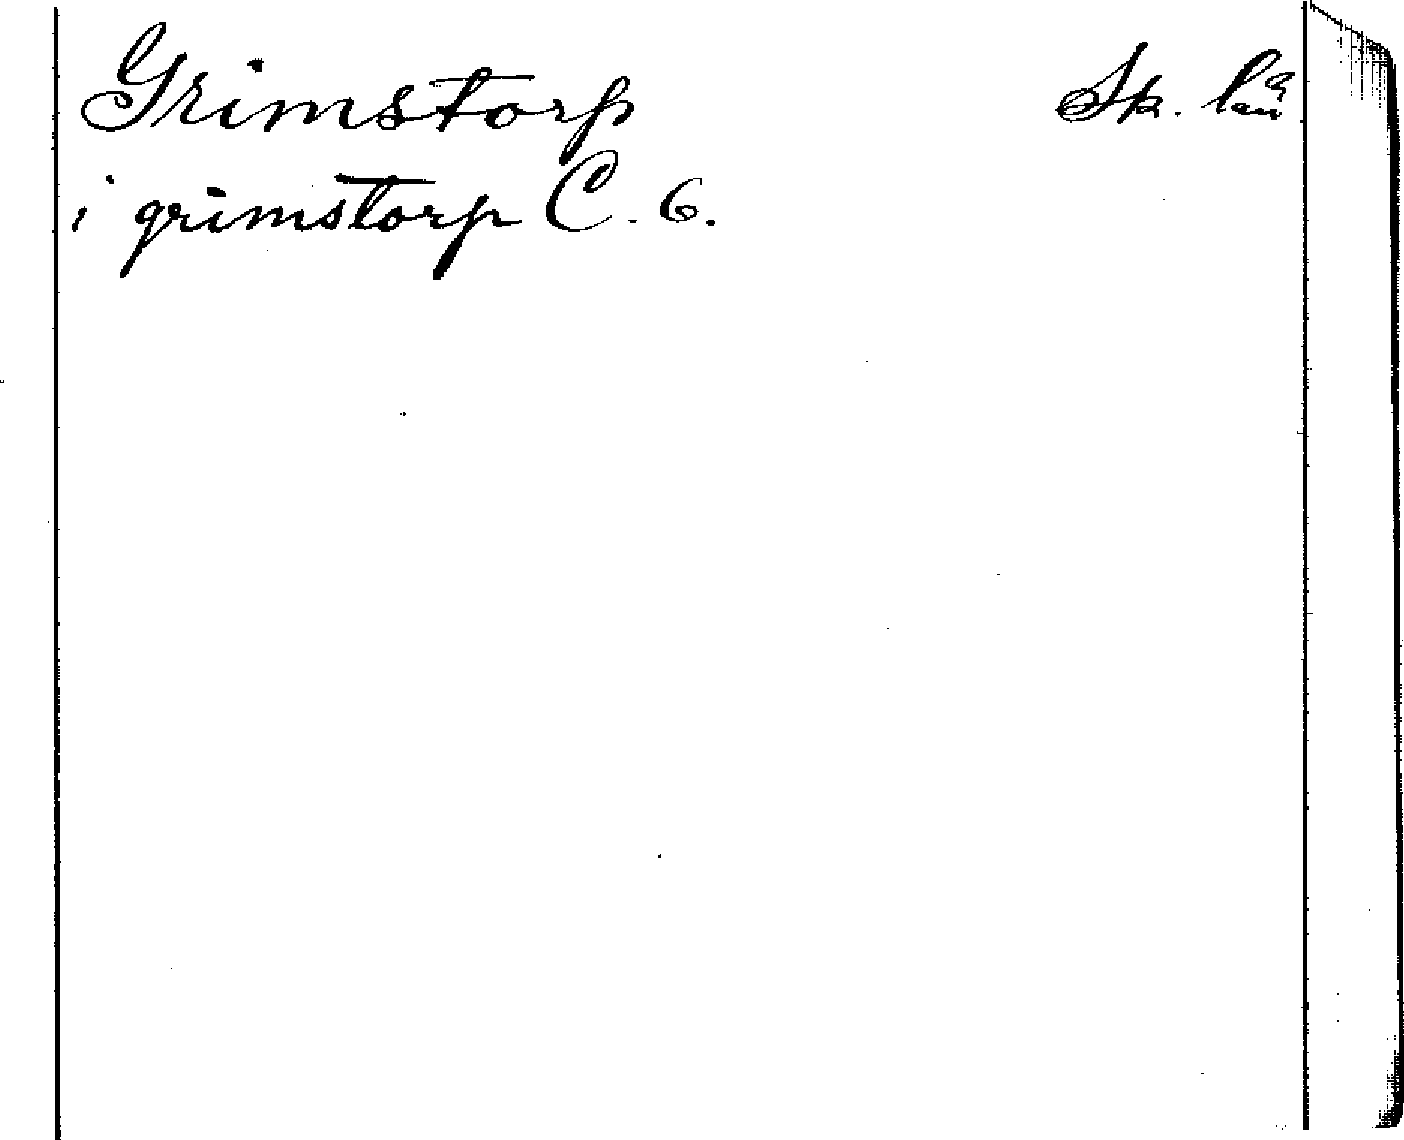 Grimstorp Sk. län
i grimstorp C. 6.